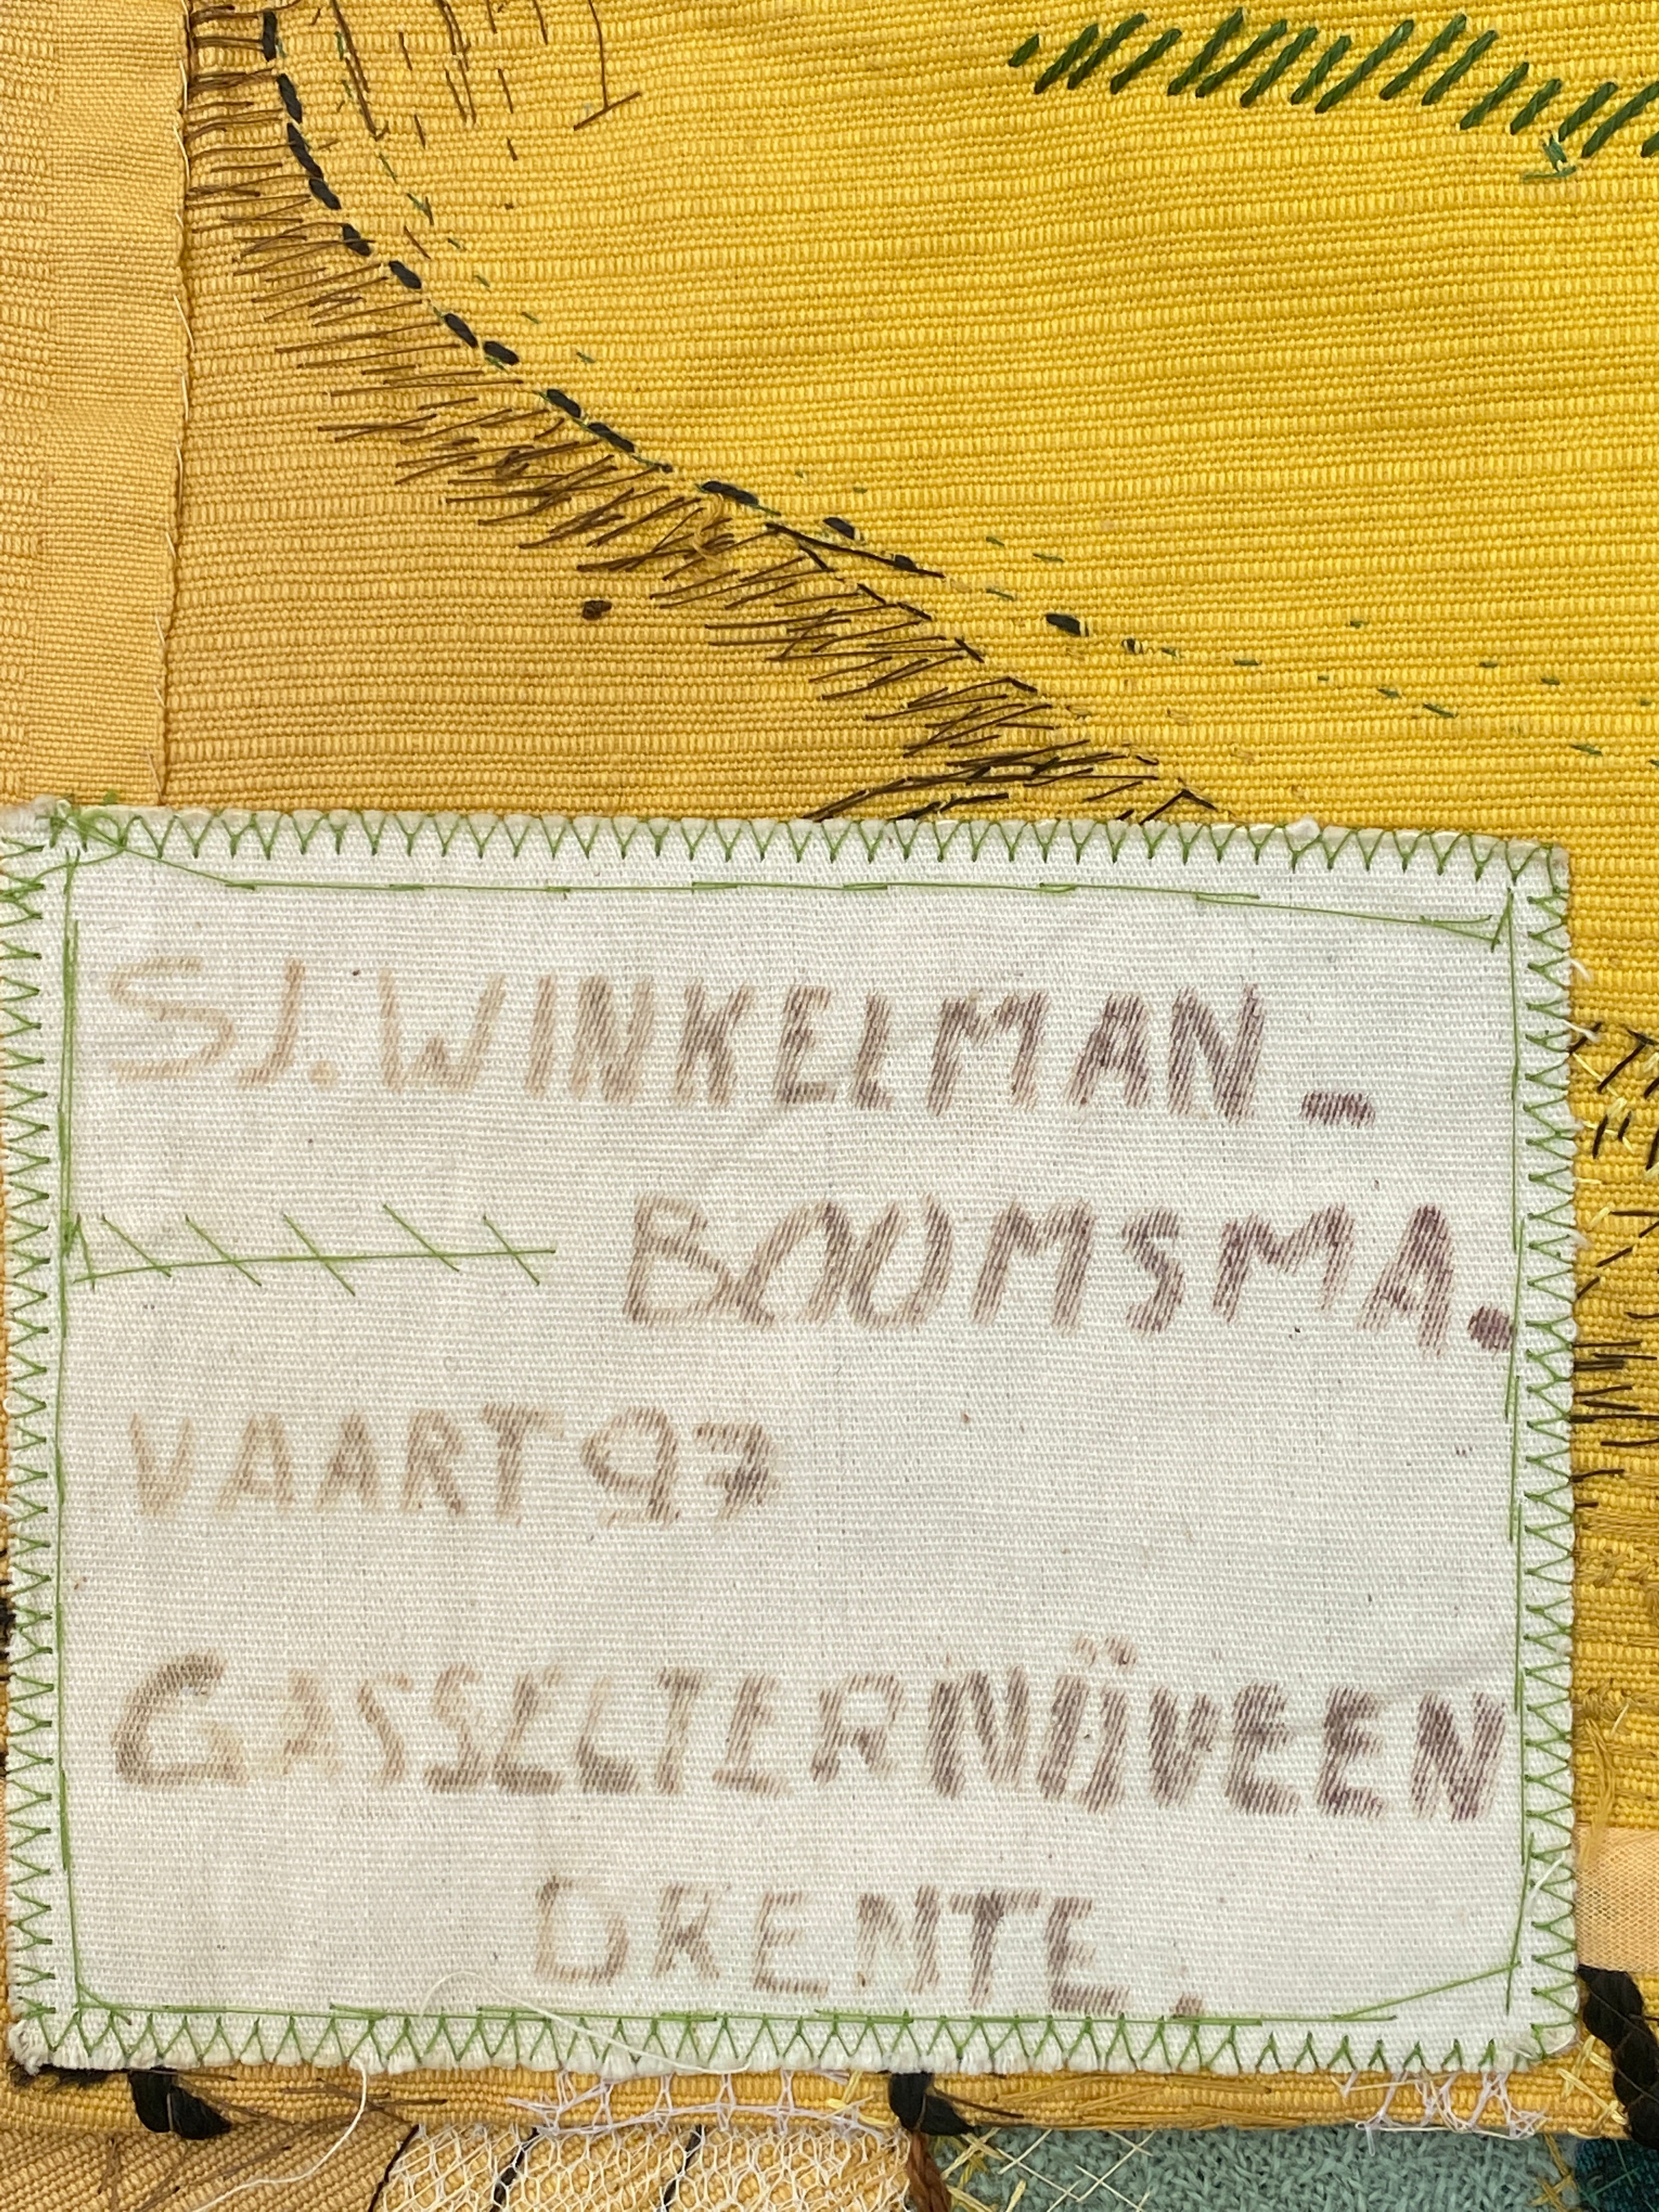 SJ. WINKELMAN-
BOOMSMA.
VAART 97
GASSELTERNÜVEEN
DRENTE.